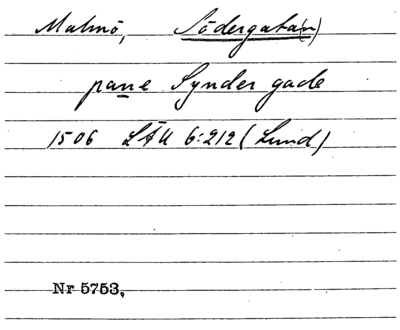 Malmö, Södergata(n)
pane Synder gade
1506 LÄU 6:212 (Lund)
Nr 5753,